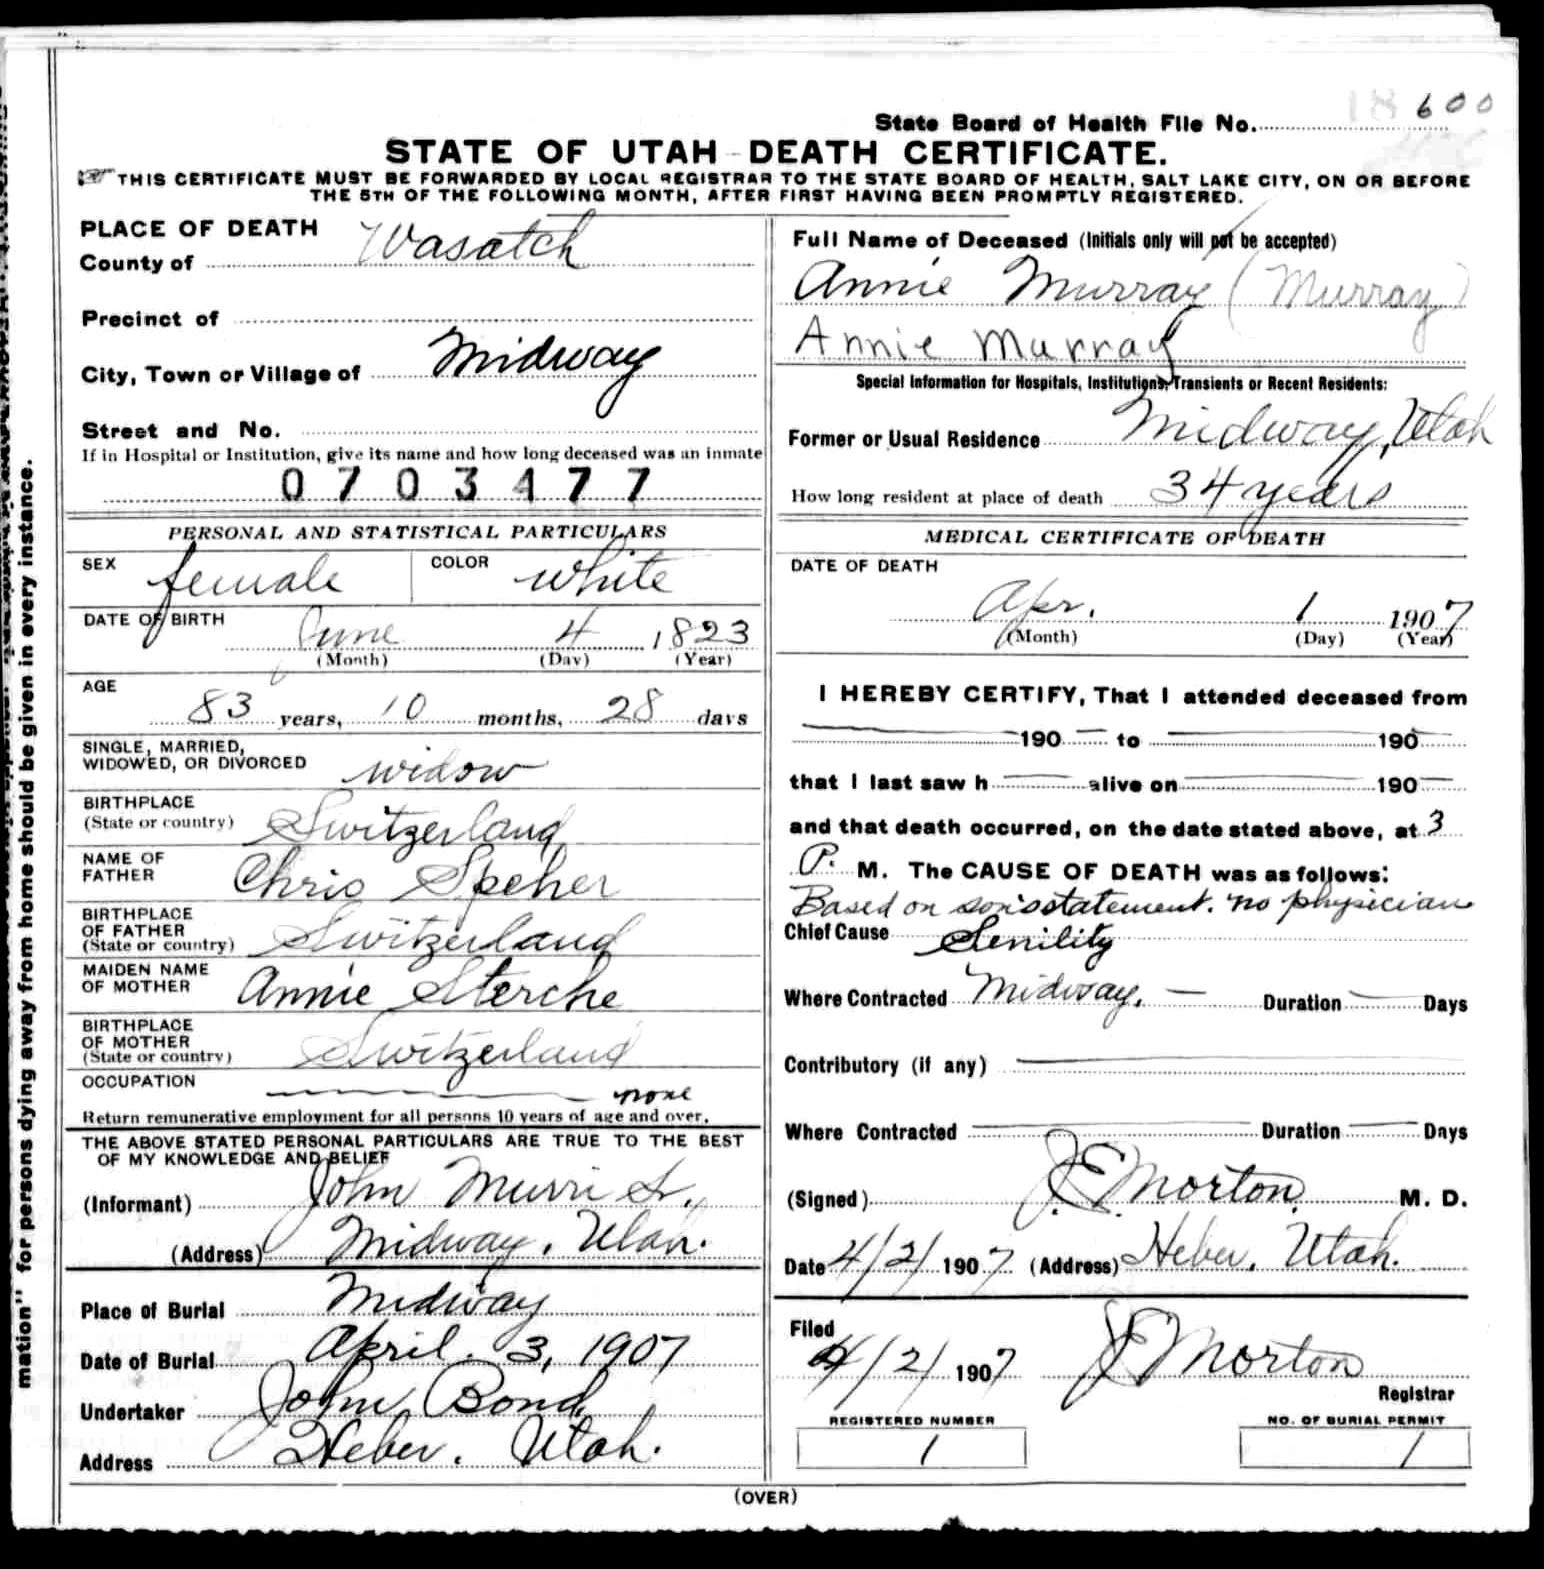 State Board of Health File No. 600
STATE OF UTAH - DEATH CERTIFICATE.
THIS CERTIFICATE MUST BE FORWARDED BY LOCAL REGISTRAR TO THE STATE BOARD OF HEALTH, SALT LAKE CITY, ON OR BEFORE
THE 5TH OF THE FOLLOWING MONTH, AFTER FIRST HAVING BEEN PROMPTLY REGISTERED.
PLACE OF DEATH
County of Wasatch
Precinct of
City, Town or Village of Midway
Street and No.
If in Hospital or Institution, give its name and how long deceased was an inmate
0703477
PERSONAL AND STATISTICAL PARTICULARS
SEX female COLOR white
DATE OF BIRTH June 4 1823
(Month) (Day) (Year)
AGE
83 years, 10 months, 28 days
SINGLE, MARRIED,
WIDOWED, OR DIVORCED widow
BIRTHPLACE
(State or country) Switzerland
NAME OF
FATHER Chris Speher
BIRTHPLACE
OF FATHER
(State or country) Switzerland
MAIDEN NAME
OF MOTHER Annie Sterche
BIRTHPLACE
OF MOTHER
(State or country) Switzerland
OCCUPATION none
Return remunerative employment for all persons 10 years of age and over.
THE ABOVE STATED PERSONAL PARTICULARS ARE TRUE TO THE BEST
OF MY KNOWLEDGE AND BELIEF
(Informant) John Murri Sr.,
(Address) Midway, Utah.
Place of Burial Midway
Date of Burial April 3, 1907
Undertaker John Bond
Address Heber, Utah.
Full Name of Deceased (Initials only will not be accepted)
Annie Murray (Murray)
Annie Murray
Special Information for Hospitals, Institutions, Transients or Recent Residents:
Former or Usual Residence Midway, Utah
How long resident at place of death 34 years
MEDICAL CERTIFICATE OF DEATH
DATE OF DEATH
Apr. 1 1907
(Month) (Day) (Year)
I HEREBY CERTIFY, That I attended deceased from
190 to 190
that I last saw h alive on 190
and that death occurred, on the date stated above, at 3
P. M. The CAUSE OF DEATH was as follows:
Based on son's statement. no physician
Chief Cause Senility
Where Contracted Midway. — Duration — Days
Contributory (if any)
Where Contracted Duration Days
(Signed) J.E. Morton, M. D.
Date 4/2/ 1907 (Address) Heber, Utah.
Filed
4/2/ 1907 JE Morton
Registrar
REGISTERED NUMBER NO. OF BURIAL PERMIT
1 1
(OVER)
mation" for persons dying away from home should be given in every instance.